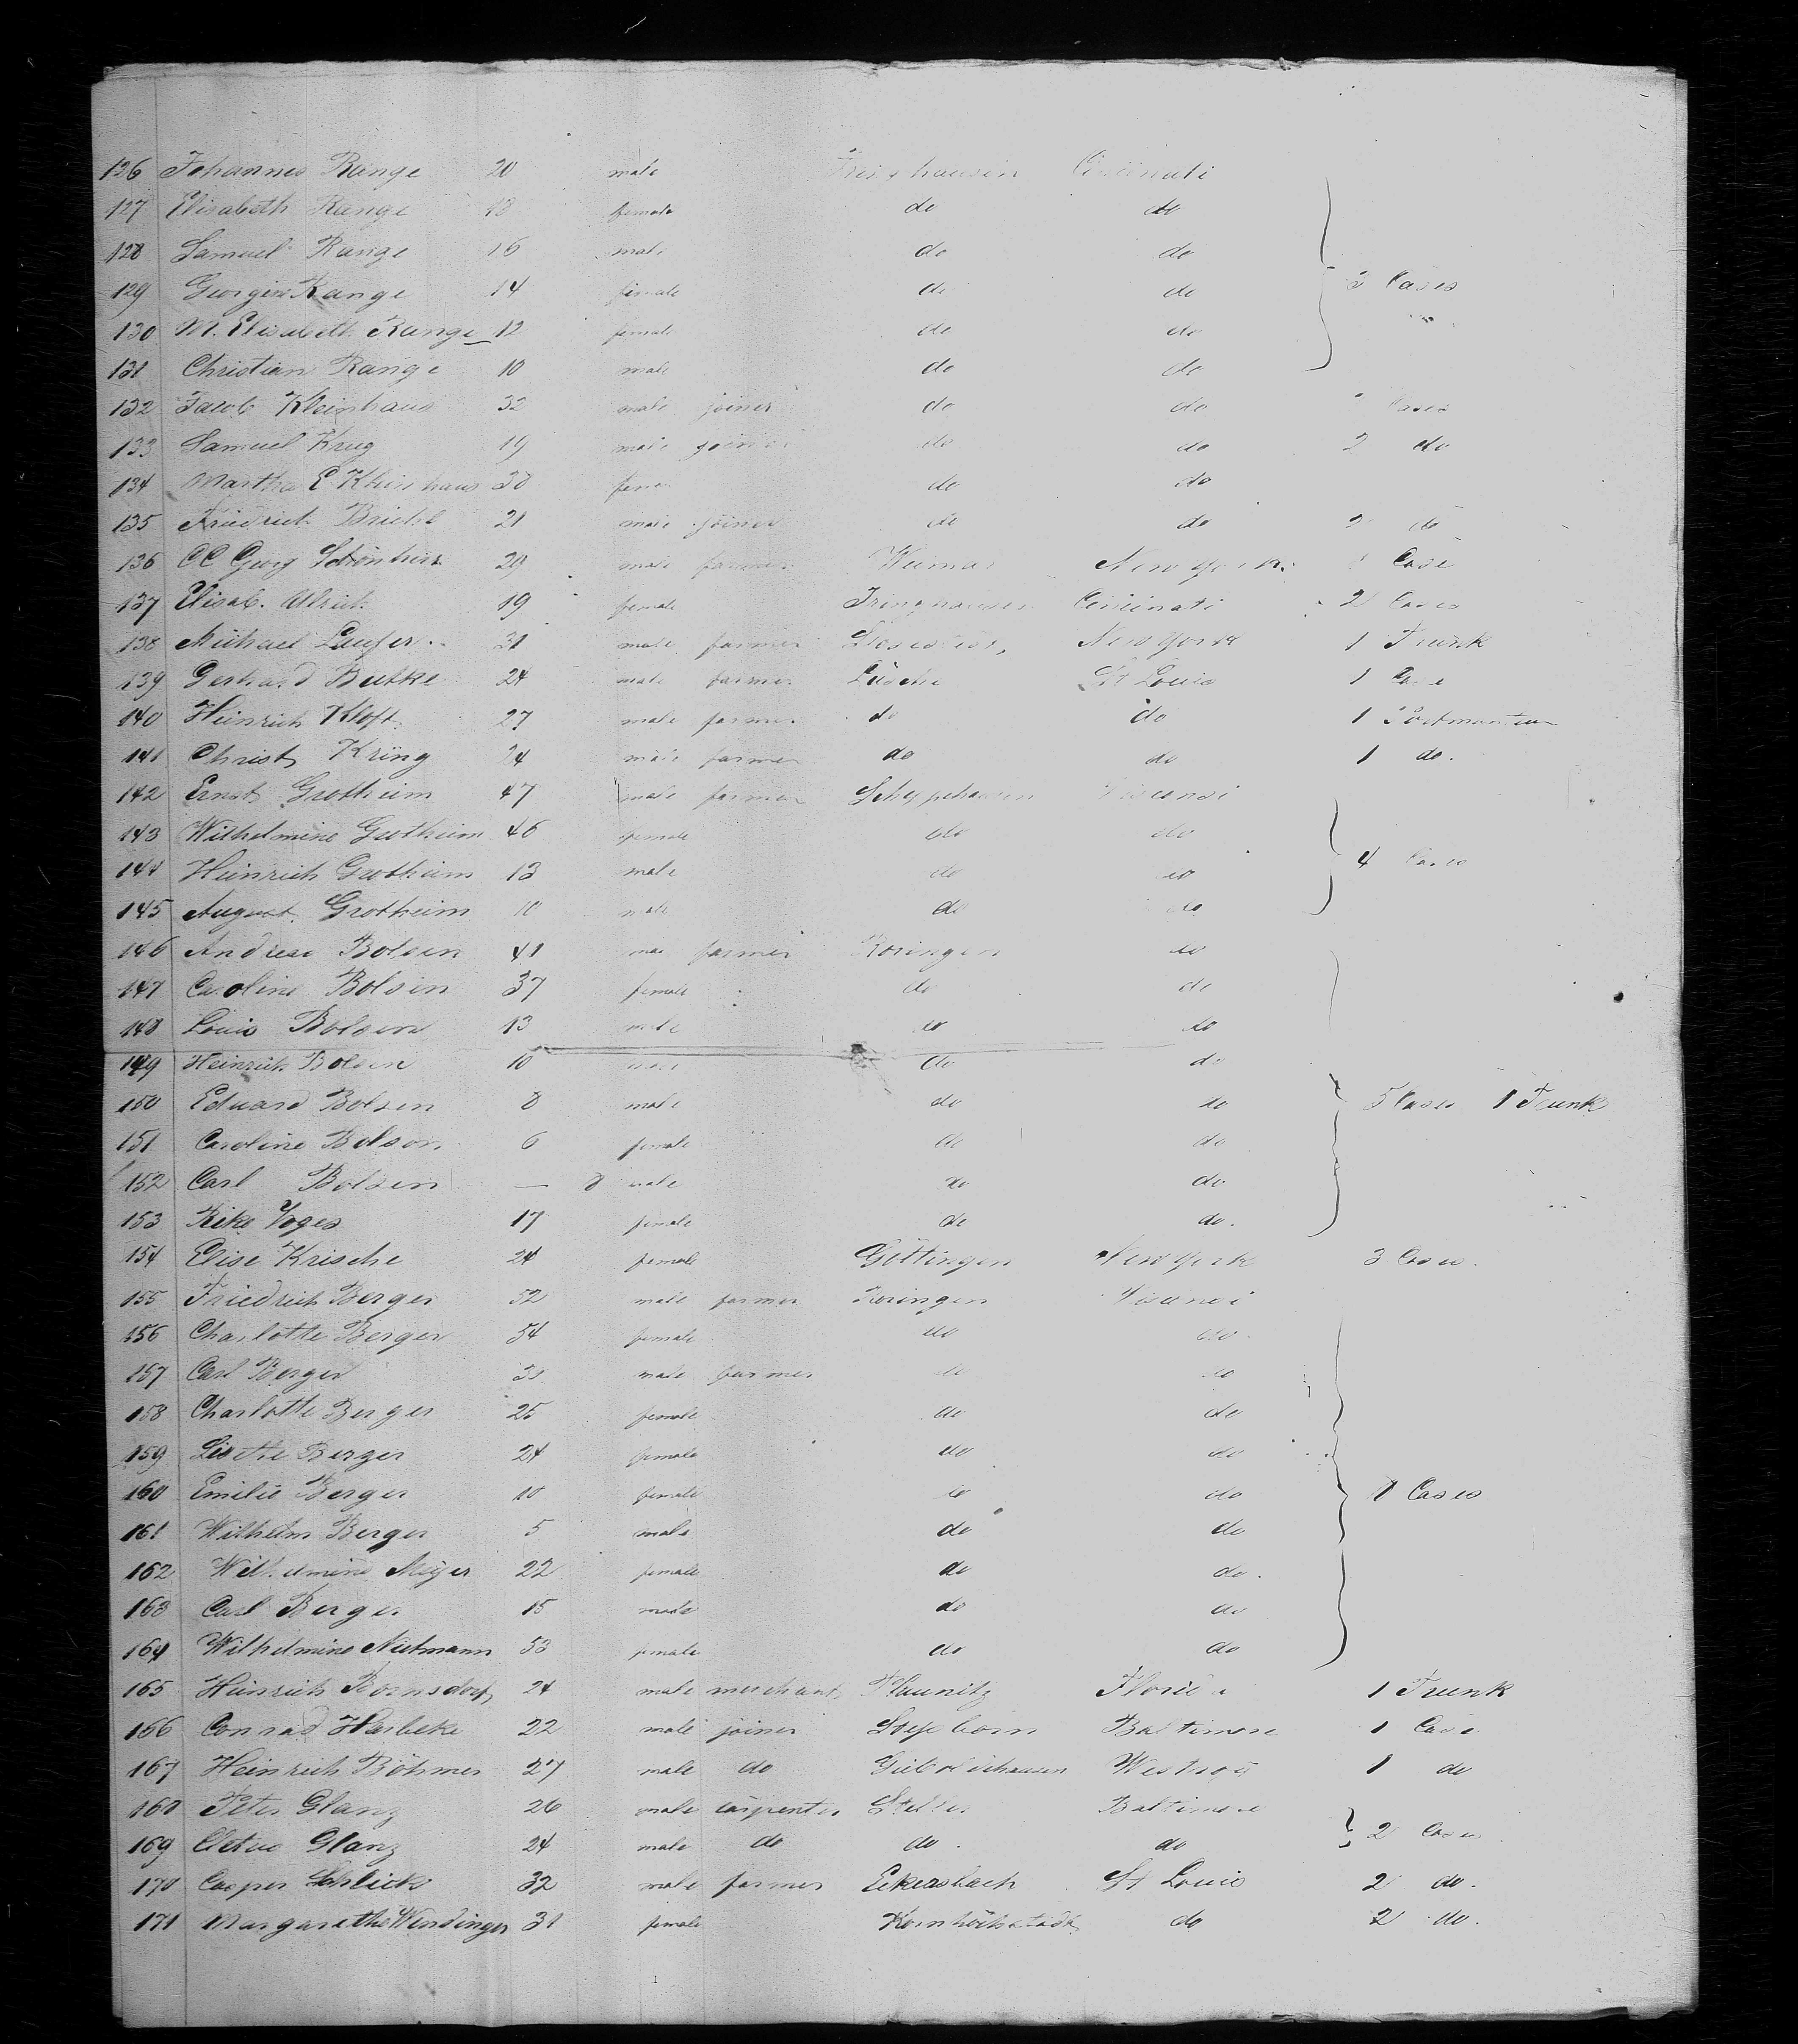 126 Johannes Range 20 male Cincinati
127 Elisabeth Range 18 female do do
128 Samuel Range 16 male do do
129 Georgine Range 14 female do do 3 Cases
130 M. Elisabeth Range 12 female do do
131 Christian Range 10 male do do
132 Jacob Kleinhaus 32 male joiner do do Cases
133 Samuel Krug 19 male joiner do do 2 do
134 Martha E Kleinhaus 38 do do
135 Friedrich Briehl 21 male joiner do do 2 do
136 Georg Schönherr 29 male farmer Weimar New York Case
137 Elisab. Ulrich 19 female Cincinati 2 Cases
138 Michael 31 male farmer New York 1 Trunk
139 Gerhard Butke 24 male farmer Lüsche St Louis 1 Case
140 Heinrich Kloft 27 male farmer do do 1 Portmanteau
141 Christ Kring 24 male farmer do do 1 do.
142 Ernst Grotheim 47 male farmer
143 Wilhelmine Grotheim 46 female do do
144 Heinrich Grotheim 13 male do do 4 Cases
145 August Grotheim 10 male do do
146 Andreas Bolsen 41 farmer do
147 Caroline Bolsen 37 female do do
148 Louis Bolsen 13 male do do
149 Heinrich Bolsen 10 do do
150 Eduard Bolsen 8 male do do 5 Cases 1 Trunk
151 Caroline Bolsen 6 female do do
152 Carl Bolsen — 8 male do do
153 Rike Voges 17 female do do.
154 Elise Krische 24 female Göttingen New York 3 Cases.
155 Friedrich Berger 52 male farmer
156 Charlotte Berger 54 female do do
157 Carl Berger male farmer do do
158 Charlotte Berger 25 female do do
159 Lisette Berger 24 female do do
160 Emilie Berger 10 female do do Cases
161 Wilhelm Berger 5 male do do
162 Wilhelmine Meyer 22 female do do.
163 Carl Berger 15 male do do
164 Wilhelmine Nietmann 53 female do do
165 Heinrich Bornsdorf 24 male merchant Plaunitz 1 Trunk
166 Conrad Harbeke 22 male joiner Baltimore 1 Case
167 Heinrich Böhmer 27 male do Gieboldehausen 1 do
168 Peter Glanz 26 male carpenter Baltimore
169 Cletus Glanz 24 male do do. do 2 Cases
170 Casper Schlick 32 male farmer Eckersbach St Louis 2 do.
171 Margarethe Windinger 31 female do 2 do.